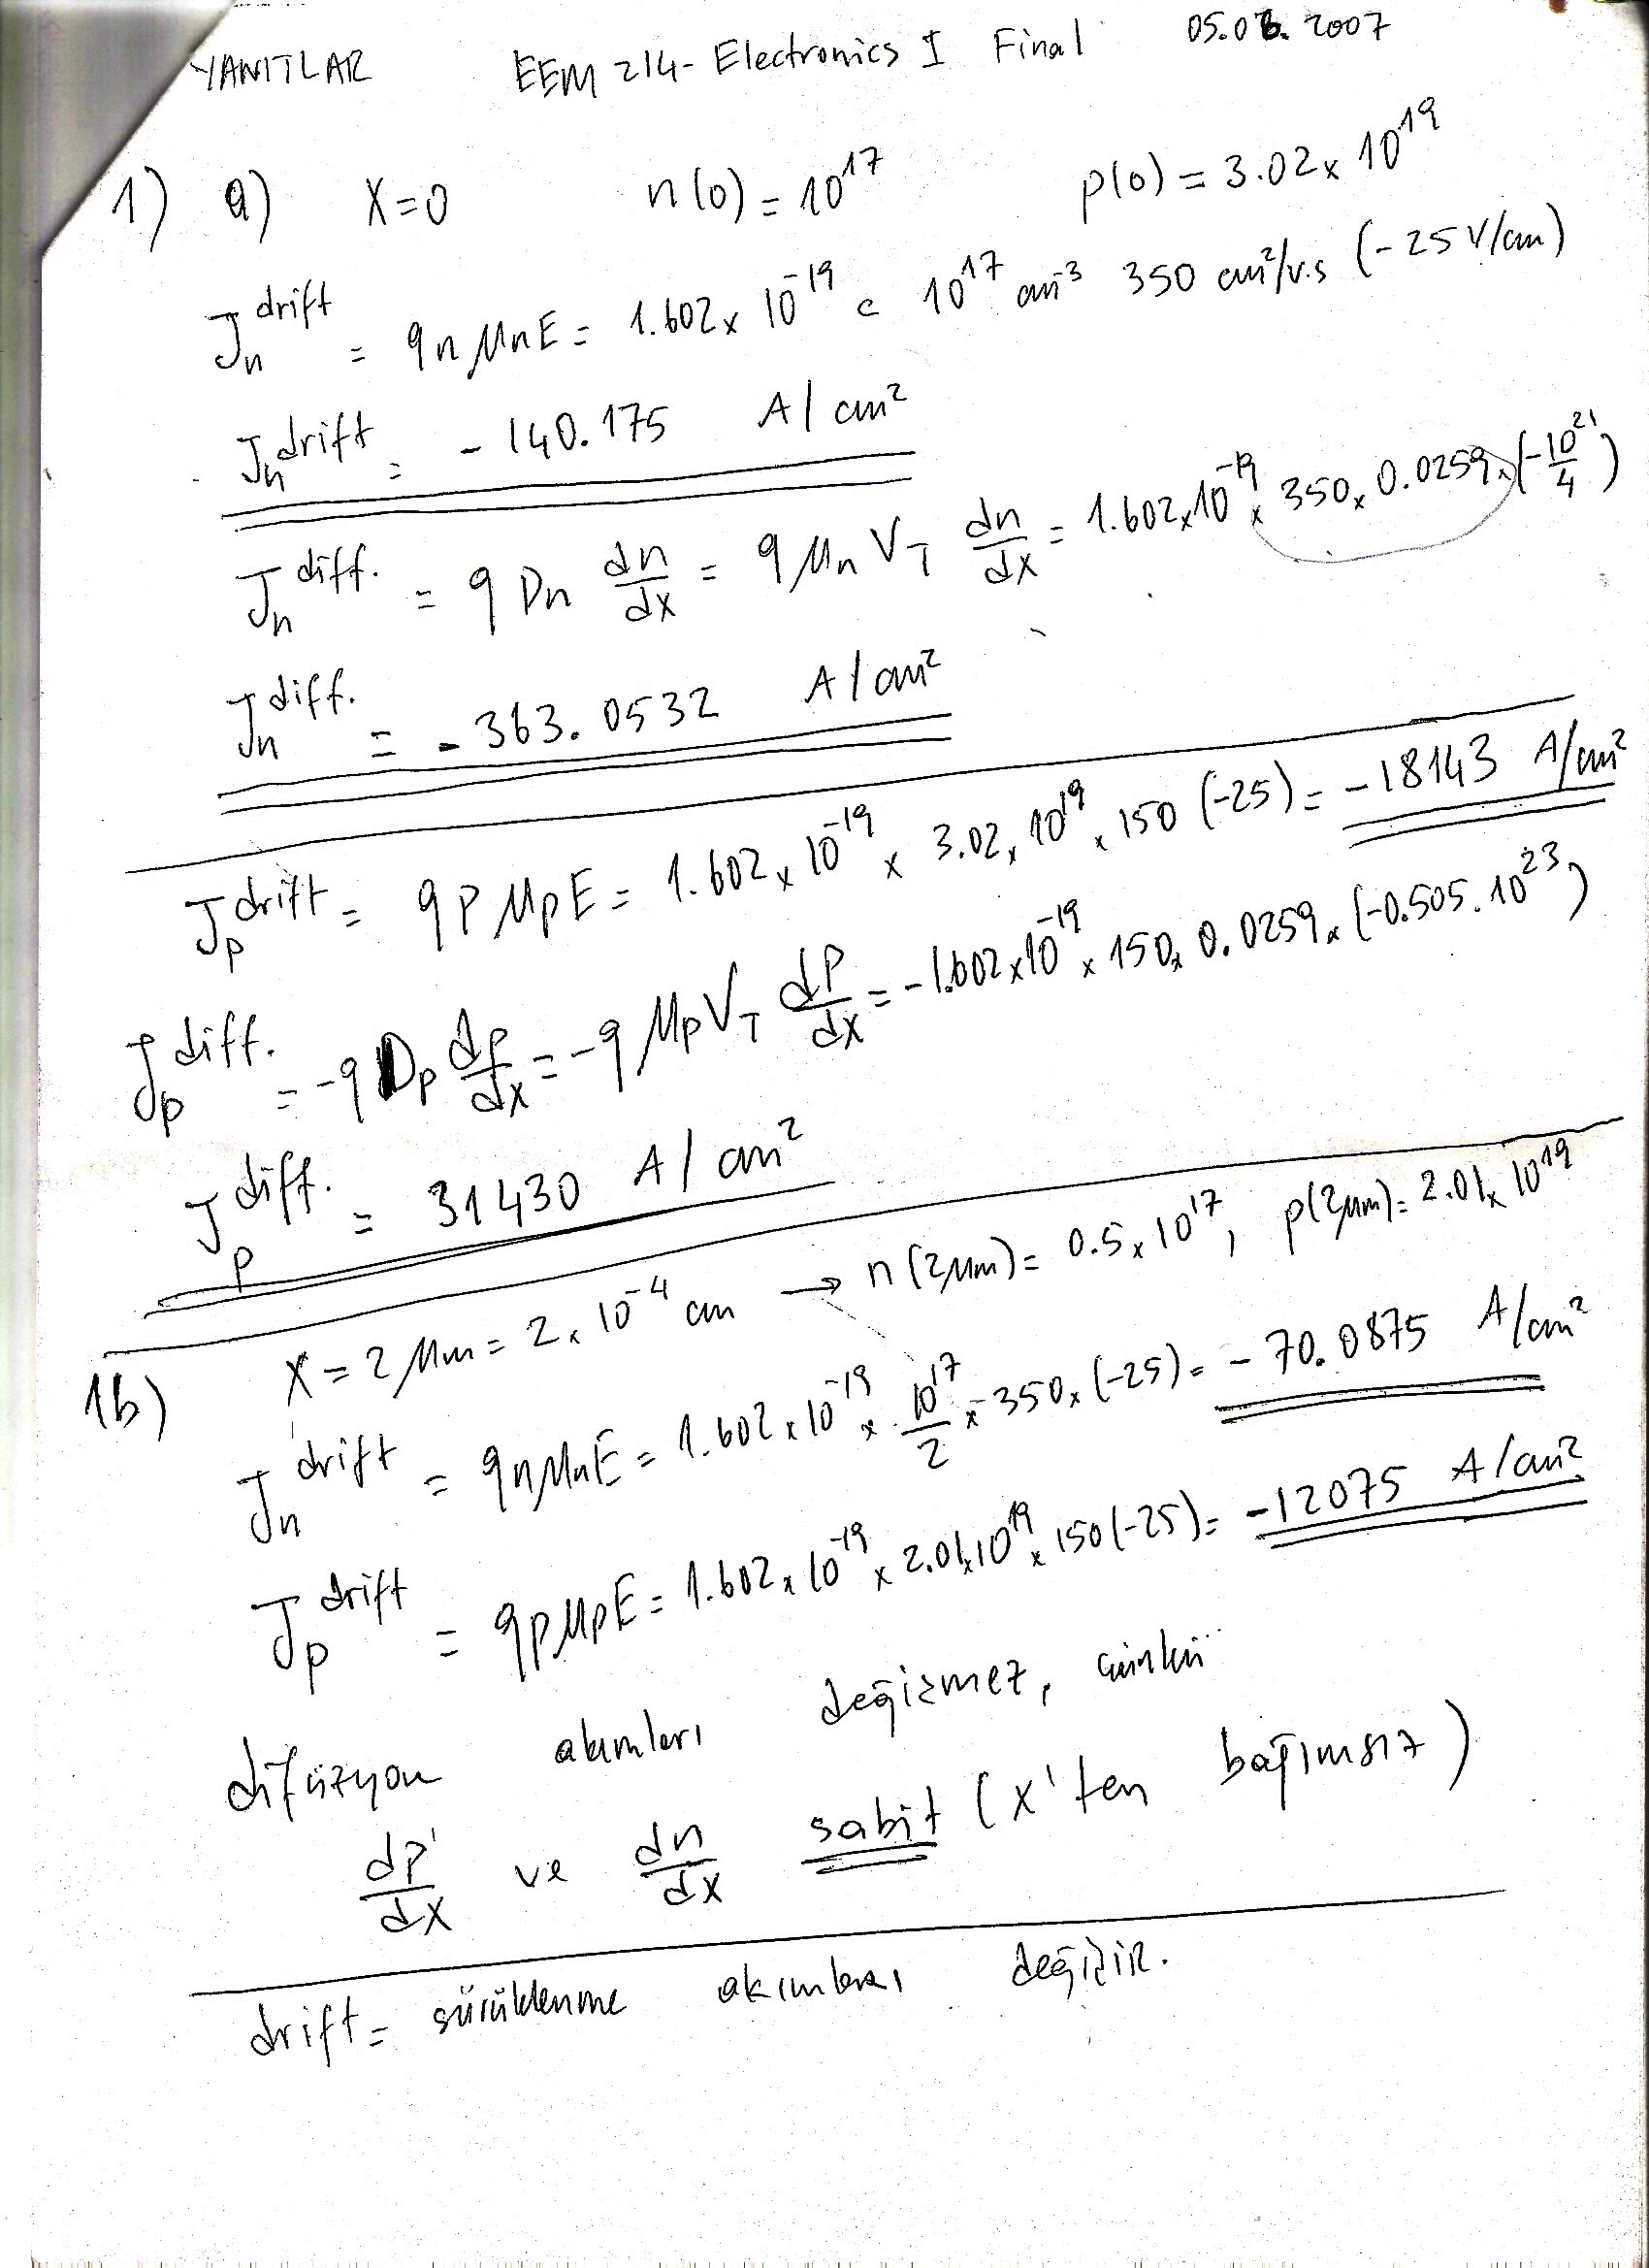 YANITLAR EEM 214- Electronics I Final 05.06.2007
1) a) X=0 n(0) = 10^17 p(0) = 3.02x10^19
Jn^drift = qnμnE = 1.602x10^-19 c 10^17 cm^-3 350 cm²/v.s (-25 V/cm)
Jn^drift = -140.175 A/cm²
Jn^diff. = q Dn dn/dx = q μn VT dn/dx = 1.602x10^-19 x 350x 0.0259x(-10^21/4)
Jn^diff. = -363.0532 A/cm²
Jp^drift = qpμpE = 1.602x10^-19 x 3.02x10^19 x 150 (-25) = -18143 A/cm²
Jp^diff. = -qDp dp/dx = -qμpVT dP/dx = -1.602x10^-19 x 150x 0.0259x(-0.505.10^23)
Jp^diff. = 31430 A/cm²
1b) X = 2μm = 2x10^-4 cm → n(2μm) = 0.5x10^17, p(2μm) = 2.01x10^19
Jn^drift = qnμnE = 1.602x10^-19 x 10^17/2 x 350x(-25) = -70.0875 A/cm²
Jp^drift = qpμpE = 1.602x10^-19 x 2.01x10^19 x 150(-25) = -12075 A/cm²
difüzyon akımları değişmez, çünkü
dP/dx ve dn/dx sabit (x'ten bağımsız)
drift = sürüklenme akımları değişir.